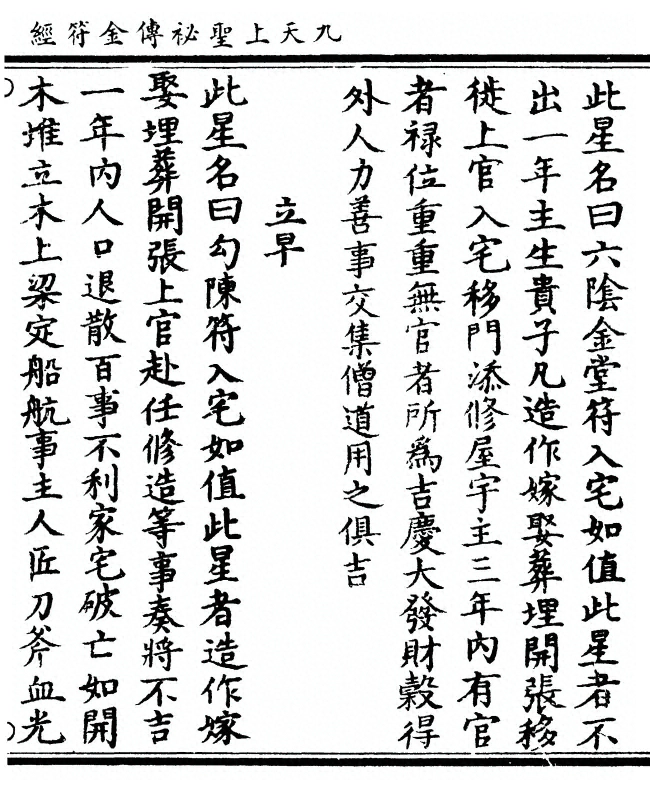 九天上聖祕傳金符經
此星名曰六陰金堂符入宅如值此星者不
出一年主生貴子凡造作嫁娶葬埋開張移
徙上官入宅移門添修屋宇主三年內有官
者禄位重重無官者所爲吉慶大發財穀得
外人力善事交集僧道用之俱吉
立早
此星名曰勾陳符入宅如值此星者造作嫁
娶埋葬開張上官赴任修造等事奏將不吉
一年內人口退散百事不利家宅破亡如開
木堆立木上梁定船航事主人匠刀斧血光